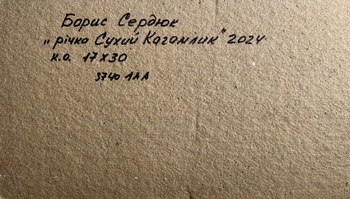 Борис Сердюк
„річка Сухий Кагамлик" 2024
к.о. 17х30
3740 1АА